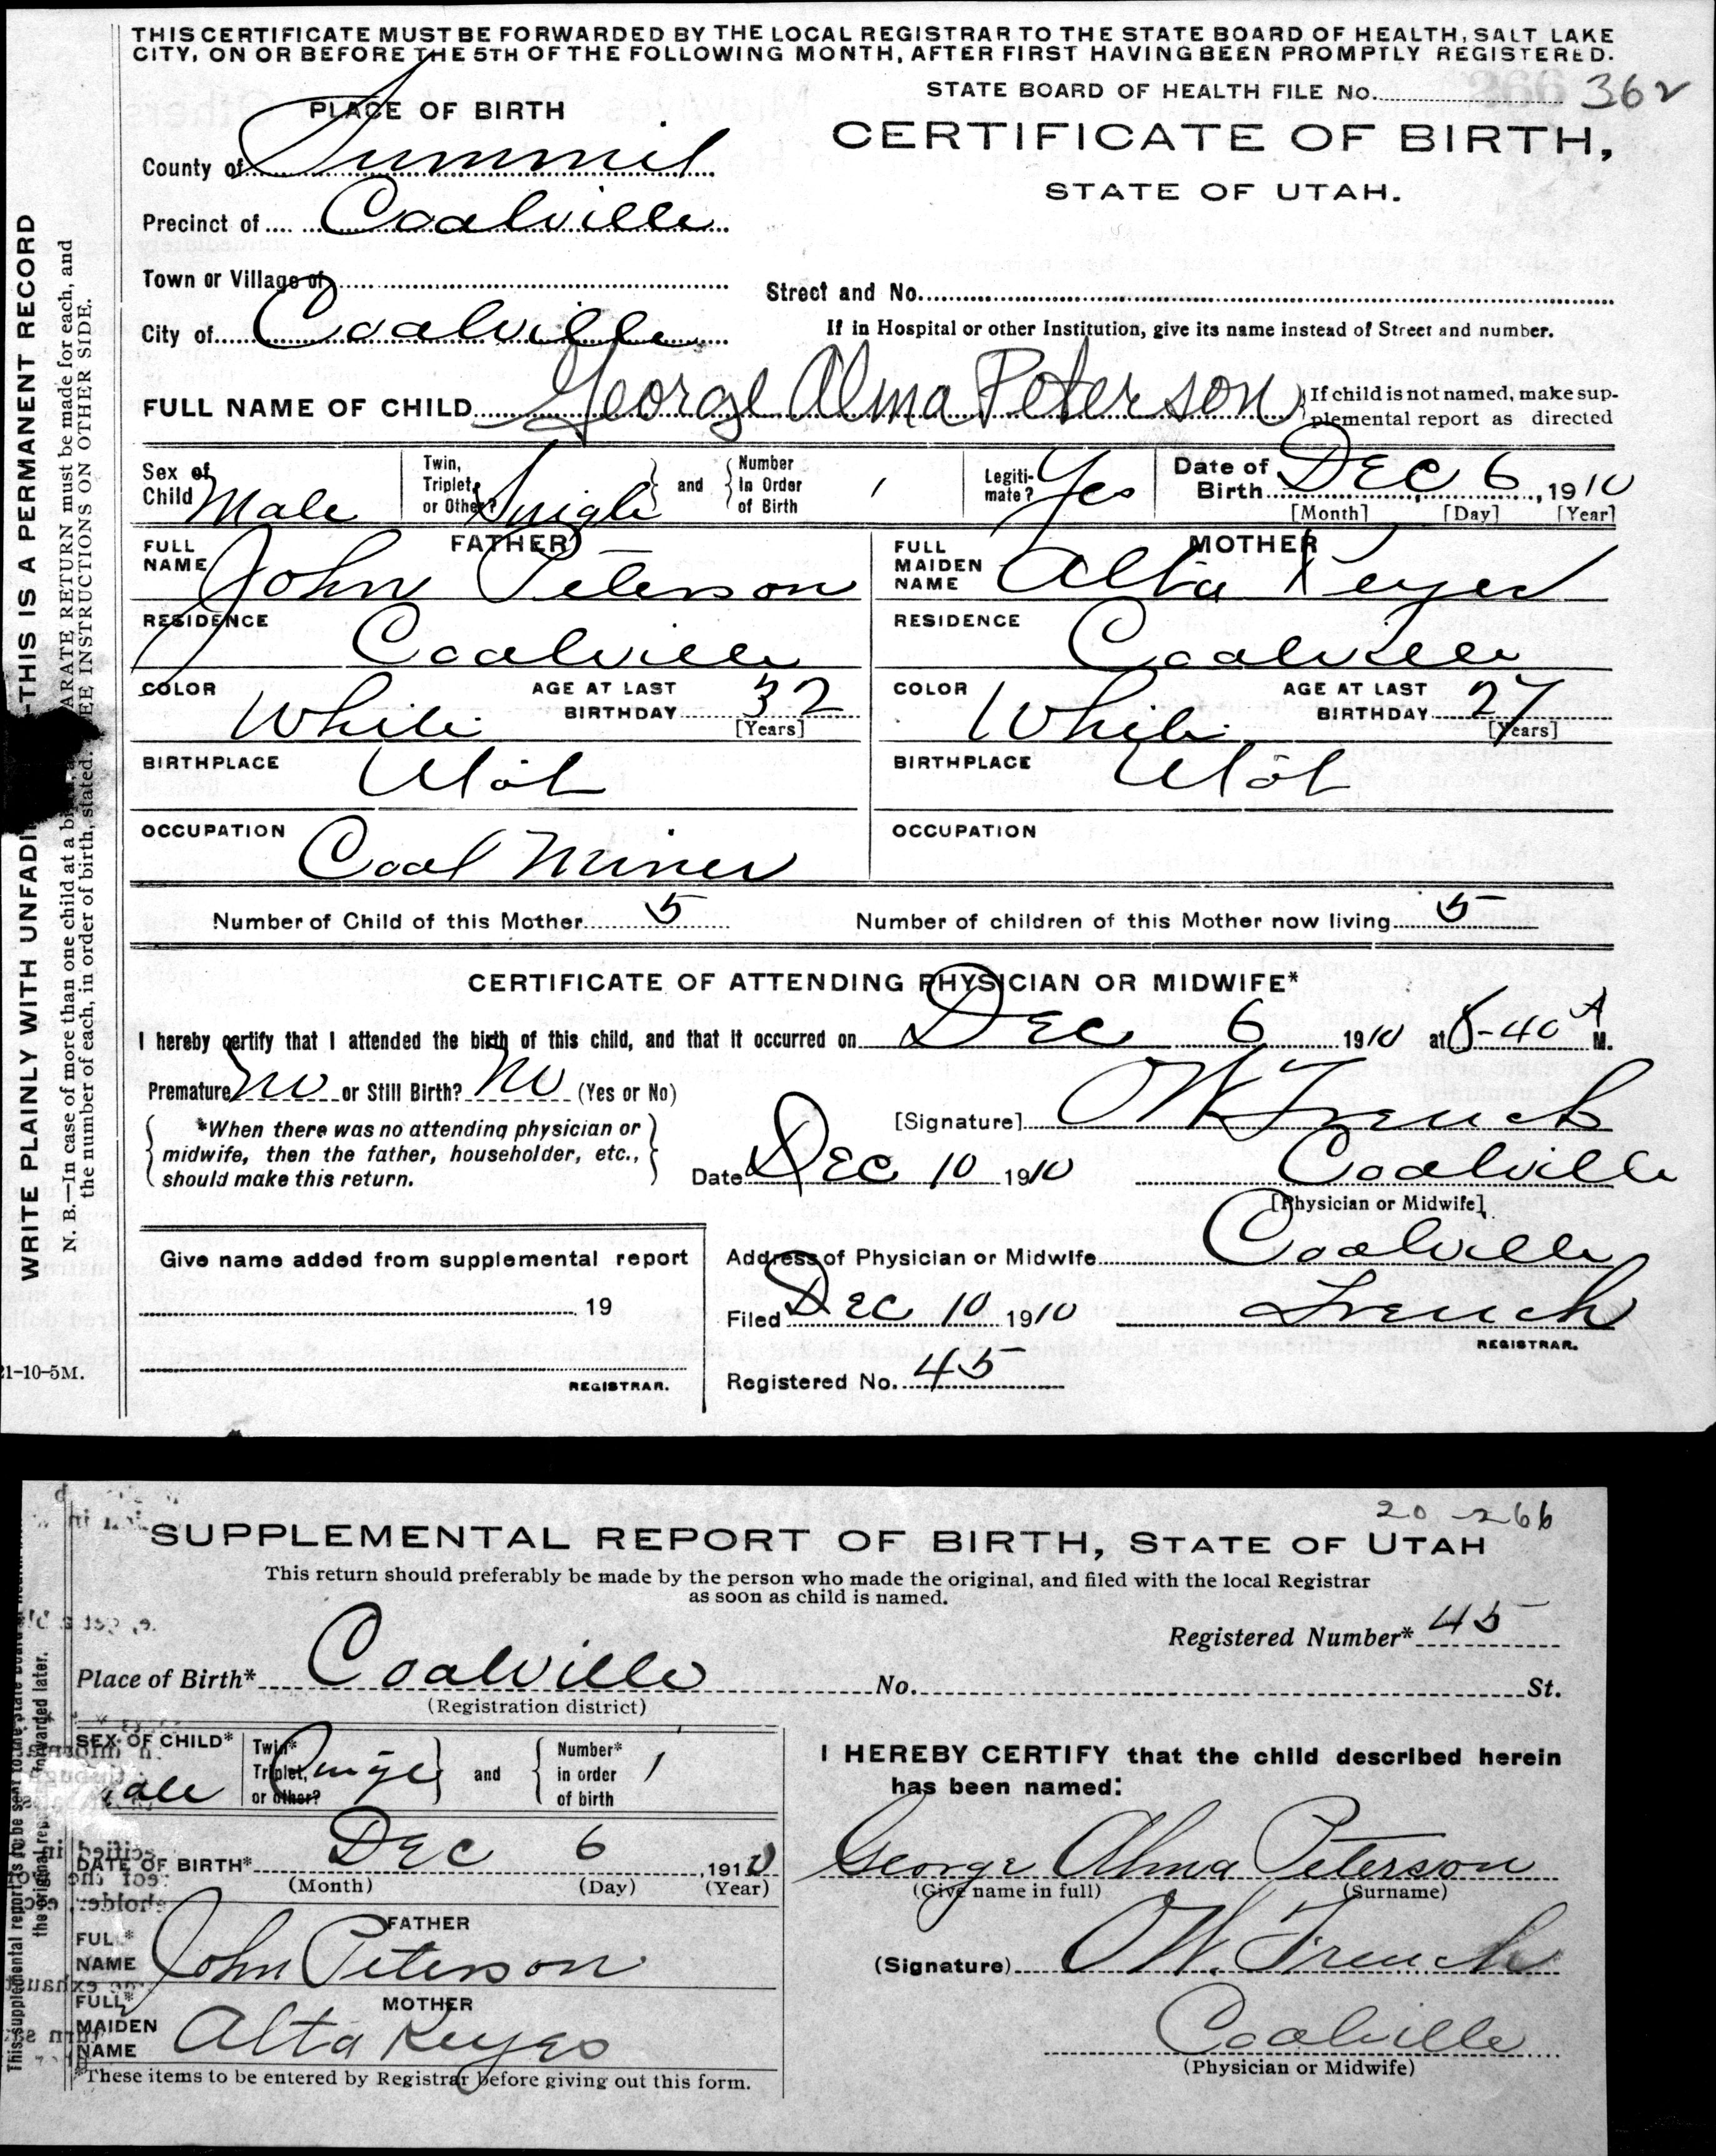 THIS CERTIFICATE MUST BE FORWARDED BY THE LOCAL REGISTRAR TO THE STATE BOARD OF HEALTH, SALT LAKE
CITY, ON OR BEFORE THE 5TH OF THE FOLLOWING MONTH, AFTER FIRST HAVING BEEN PROMPTLY REGISTERED.
STATE BOARD OF HEALTH FILE No. 362
PLACE OF BIRTH
CERTIFICATE OF BIRTH,
STATE OF UTAH.
County of Summit
Precinct of Coalville
Town or Village of
Street and No.
City of Coalville
If in Hospital or other Institution, give its name instead of Street and number.
FULL NAME OF CHILD George Alma Peterson
If child is not named, make sup-
plemental report as directed
Sex of Child Male
Twin, Triplet, or Other? Single and Number In Order of Birth 1
Legiti-mate? Yes
Date of Birth DEC 6, 1910
[Month] [Day] [Year]
FATHER
FULL NAME John Peterson
MOTHER
FULL MAIDEN NAME Alta Keyes
RESIDENCE Coalville
RESIDENCE Coalville
COLOR White AGE AT LAST BIRTHDAY 32 [Years]
COLOR White AGE AT LAST BIRTHDAY 27 [Years]
BIRTHPLACE Utah
BIRTHPLACE Utah
OCCUPATION Coal Miner
OCCUPATION
Number of Child of this Mother 5 Number of children of this Mother now living 5
CERTIFICATE OF ATTENDING PHYSICIAN OR MIDWIFE*
I hereby certify that I attended the birth of this child, and that it occurred on Dec 6 1910 at 8-40 A M.
Premature No or Still Birth? No (Yes or No)
*When there was no attending physician or
midwife, then the father, householder, etc.,
should make this return.
[Signature] OW French
Date Dec 10 1910 Coalville
[Physician or Midwife]
Give name added from supplemental report
19
REGISTRAR.
Address of Physician or Midwife Coalville
Filed Dec 10 1910 French
REGISTRAR.
Registered No. 45
WRITE PLAINLY WITH UNFADI
-THIS IS A PERMANENT RECORD
N. B.—In case of more than one child at a
ARATE RETURN must be made for each, and
the number of each, in order of birth, stated.
EE INSTRUCTIONS ON OTHER SIDE.
21-10-5M.
20-266
SUPPLEMENTAL REPORT OF BIRTH, STATE OF UTAH
This return should preferably be made by the person who made the original, and filed with the local Registrar
as soon as child is named.
Registered Number* 45
Place of Birth* Coalville No. St.
(Registration district)
SEX OF CHILD* ale
Twin* Triplet, or other? Single and Number* in order of birth 1
DATE OF BIRTH* DEC 6, 1910
(Month) (Day) (Year)
FATHER
FULL* NAME John Peterson
MOTHER
FULL* MAIDEN NAME Alta Keyes
*These items to be entered by Registrar before giving out this form.
I HEREBY CERTIFY that the child described herein
has been named:
George Alma Peterson
(Give name in full) (Surname)
(Signature) OW. French
Coalville
(Physician or Midwife)
This supplemental report to be sent to the State Board
the original
forwarded later.